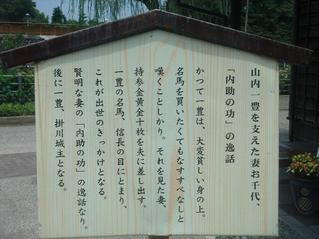 山内一豊を支えた妻お千代、
「内助の功」の逸話
かつて一豊は、大変貧しい身の上。
名馬を買いたくてもなすすべなしと
嘆くことしかり。それを見た妻、
持参金黄金十枚を夫に差し出す。
一豊の名馬、信長の目にとまり、
これが出世のきっかけとなる。
賢明な妻の「内助の功」の逸話なり。
後に一豊、掛川城主となる。